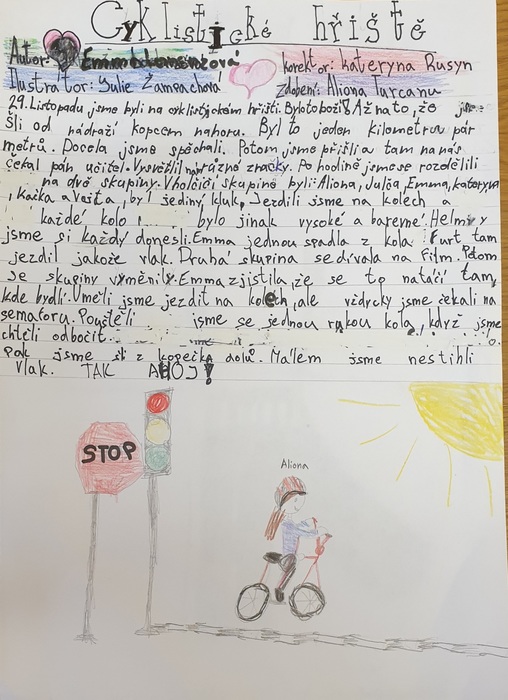 Cyklistické hřiště
Autor: Emma
korektor: kateryna Rusyn
Ilustrátor: Yulie Žampachová
Zdobení: Aliona Turcanu
29. Listopadu jsme byli na cyklistickém hřišti. Bylo to boží! Až na to, že jsme
šli od nádraží kopcem nahoru. Byl to jeden kilometr a pár
metrů. Docela jsme spěchali. Potom jsme přišli a tam na nás
čekal pán učitel. Vysvětlil nám různé značky. Po hodině jsme se rozdělili
na dvě skupiny. V holčičí skupině byli: Aliona, Julča, Emma, kateryna
, Kačka a Vašta, byl jediný kluk. Jezdili jsme na kolech a
každé kolo bylo jinak vysoké a barevné. Helmy
jsme si každý donesli. Emma jednou spadla z kola. Furt tam
jezdil jakože vlak. Druhá skupina se dívala na Film. Potom
se skupiny vyměnily. Emma zjistila, že se to natáčí tam,
kde bydlí. Uměli jsme jezdit na kolech, ale vždycky jsme čekali na
semaforu. Pouštěli jsme se jednou rukou kola, když jsme
chtěli odbočit.
Pak jsme šli z kopečka dolů. Málem jsme nestihli
vlak. TAK AHOJ!
STOP
Aliona